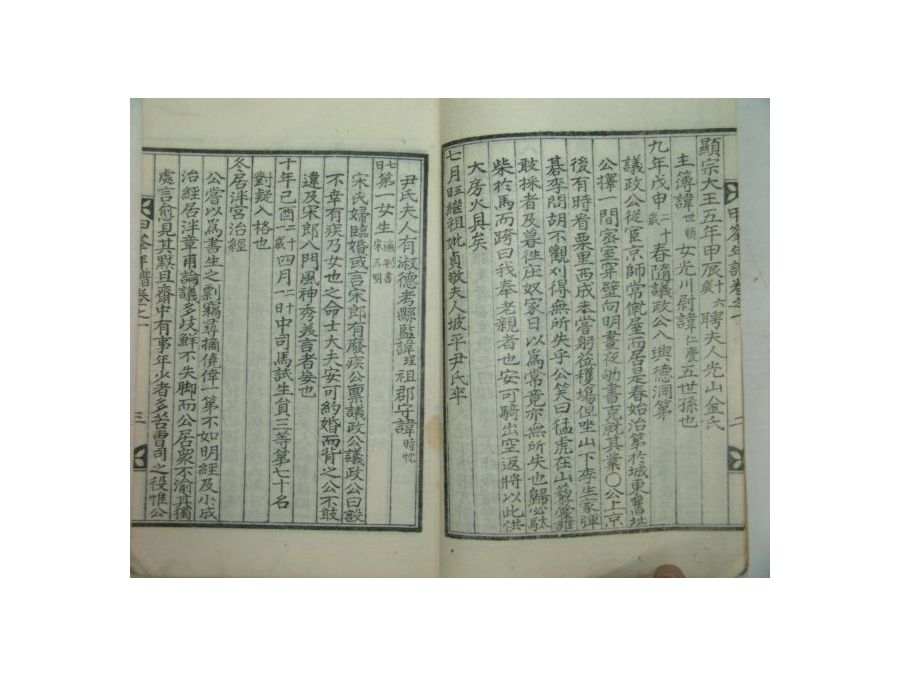 甲峯年譜卷之一
二
顯宗大王五年甲辰十六歲聘夫人光山金氏
主簿諱世頓女光川尉諱仁慶五世孫也
九年戊申二十歲春隨議政公入興德洞第
議政公從宦京師常僦屋而居是春始治第於城東舊址
公擇一間密室穿壁向明晝夜劬書克就其業○公上京
後有時看栗里西成本嘗躬莅穫場但坐山下李生家彈
碁李問胡不觀刈得無所失乎公笑曰猛虎在山藜藿誰
敢採者及暮徃庄奴家日以爲常竟亦無所失也歸必駄
柴於馬而跨曰我奉老親者也安可騎出空返將以此供
大房火具矣
七月 繼祖妣貞敬夫人坡平尹氏卒
尹氏夫人有淑德考縣監諱珵祖郡守諱時忱
七日第一女生適判書宋正明
宋氏婦臨婚或言宋郎有廢疾公稟議政公議政公曰設
不幸有疾乃女也之命士大夫安可約婚而背之公不敢
違及宋郎入門風神秀美言者毎也
十年己酉二十一歲四月二十日中司馬試生員三等第七十名
對疑入格也
冬居泮宮治經
公嘗以爲書生之剽竊尋摘倖倖一第不如明經及小成
治經居泮章甫論議多歧鮮不失脚而公居衆不渝其獨
處言愈見其黙且齋中有事年少者多苦曹司之役惟公
甲峯年譜卷之一
三